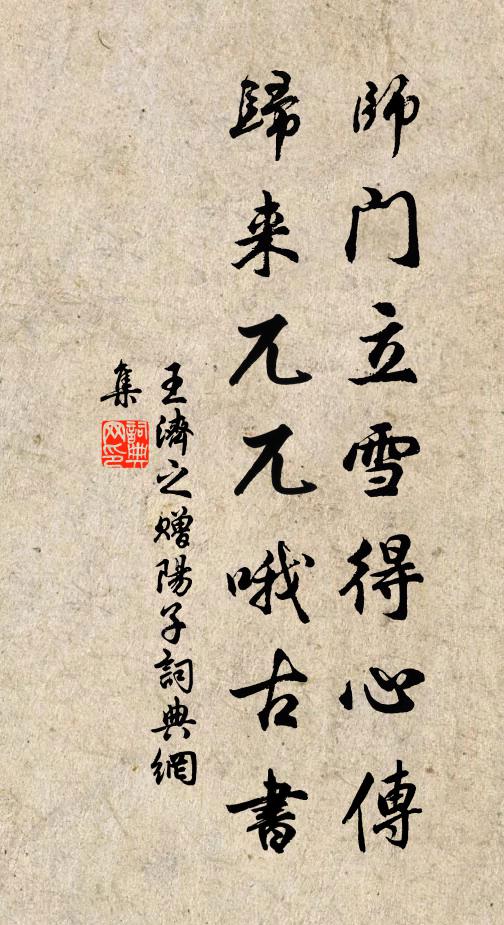 師門立雪得心傳
歸来兀兀哦古書
王濟之赠陽子詞典網
集
詞典網印